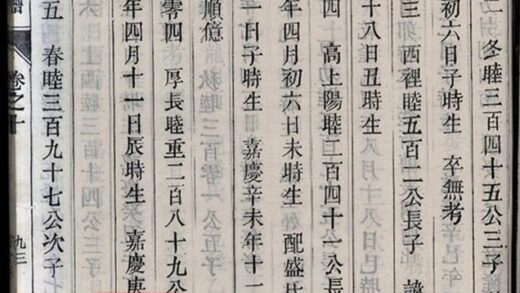 二 冬睦三百四十五公三子
初六日子時生 卒無考
西裡睦五百二公長子 諱
十八日丑時生
四 高上陽睦二百四十一公長
年四月初六日未時生 配盛氏
一日子時生 嘉慶辛未年十
順億
零四 厚長睦重二百八十九公
年四月十一日辰時生 嘉慶庚
五 春睦三百九十七公次子 七
譜 卷之十 九三